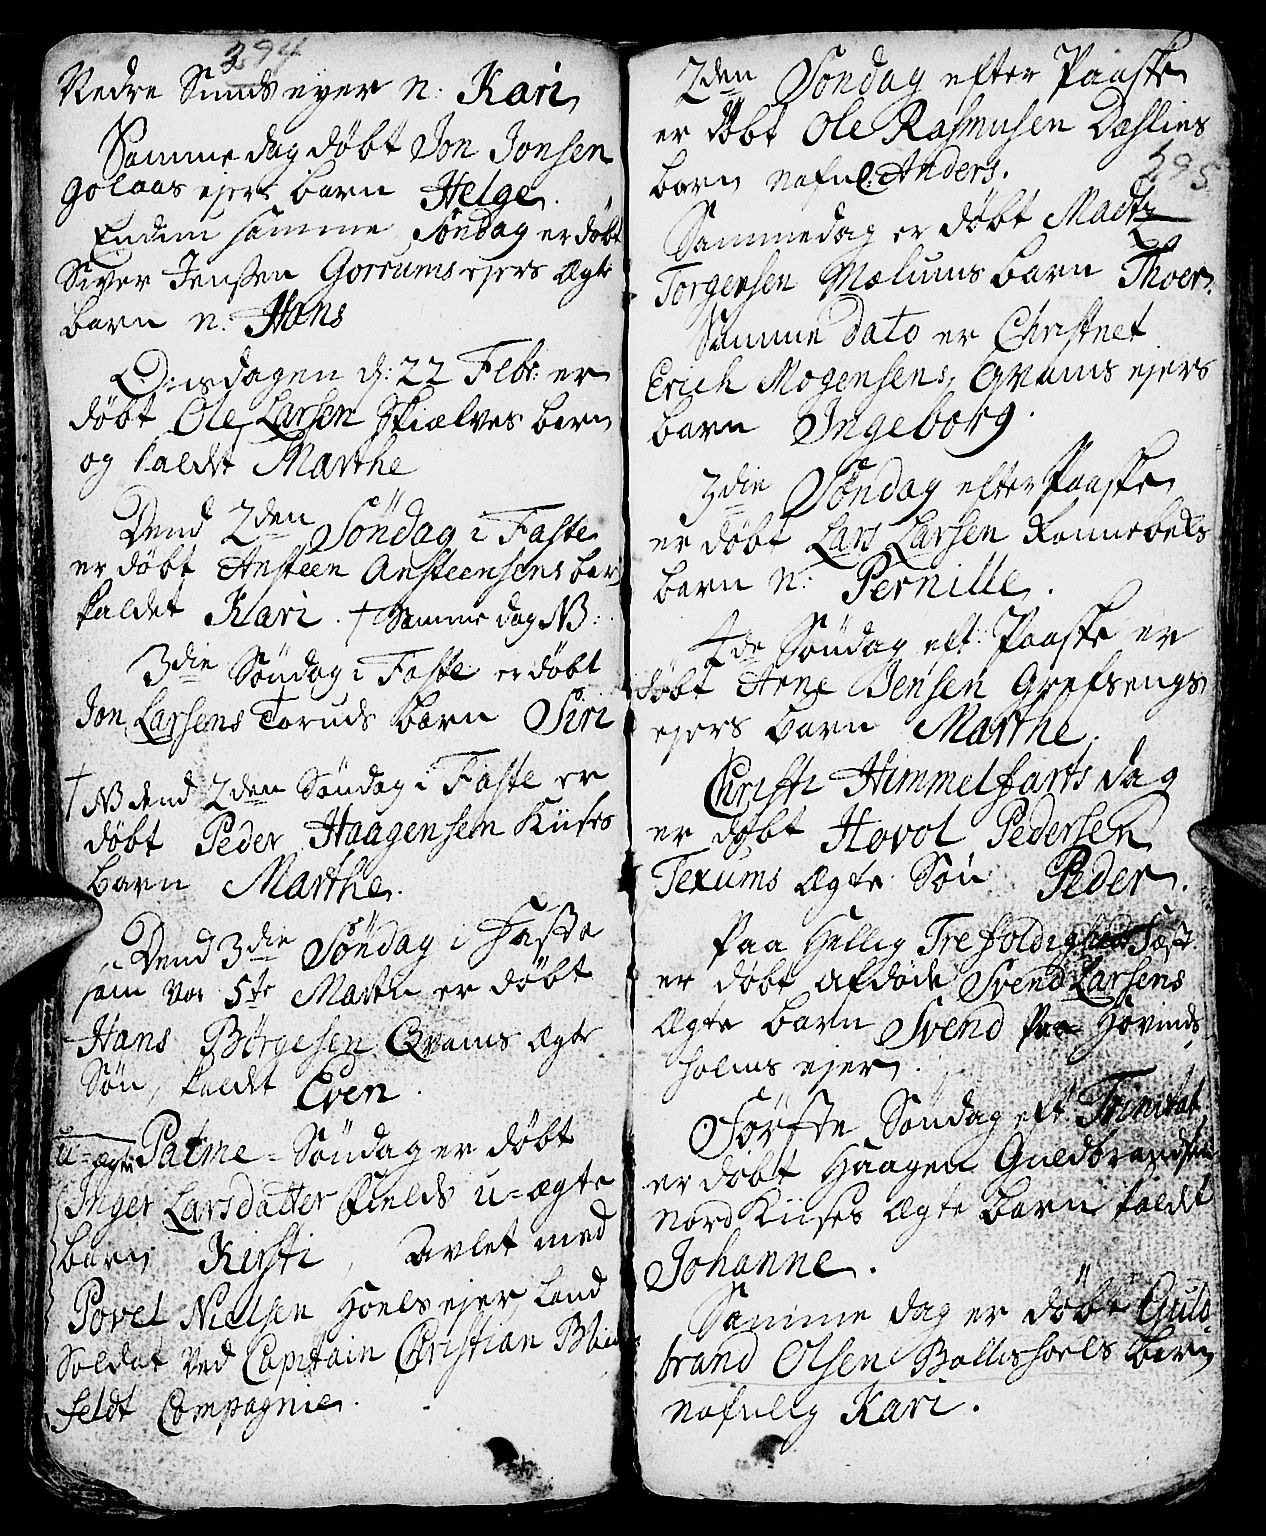 294
Nedre Sunds eyer n: Kari
Samme dag døbt Jon Jonsen
golaas ejers barn Helge.
Endnu samme Søndag er døbt
Siver Jenssen Gorrums ejers Ægte
barn n. Hans
Onsdagen d: 22 Febr: er
døbt Ole Larsen Skielves barn
og kaldt Marthe
Dend 2den Søndag i Faste
er døbt Ansteen Ansteensens bar
kaldet Kari. † Samme dag NB:
3die Søndag i Faste er døbt
Jon Larsens Toruds barn Siri
† NB dend 2den Søndag i Faste er
døbt Peder Haagensen Kiises
barn Marthe.
Dend 3die Søndag i Faste
som var 5te Martii er døbt
Hans Børgesen Qvams Ægte
Søn, kaldt Even.
u-ægte Palme-Søndag er døbt
Inger Larsdatter Fields u-ægte
barn Kirsti, Avlet med
Povel Nielsen Hoels ejer Land
Soldat ved Capitain Christian
feldt Compagnie.
2den Søndag efter Paaske
er døbt Ole Rasmusen Dahlins
295
barn nafnl. Anders.
Sammedag er døbt Madtz
Torgersen Mælums barn Thoer.
Samme dato er Christnet
Erich Mogensens, Qvams ejers
barn Ingeborg.
3die Søndag efter Paaske
er døbt Lars Larsen Konnebeks
barn n: Pernille.
4de Søndag eft: Paaske er
døbt Arne Jensen Grefsengs
ejers barn Marthe.
Christi Himmelfarts dag
er døbt Hovol Pedersen
Texums Ægte Søn Peder.
Paa Hellig Trefoldigheds Fæst
er døbt afdøde Svend Larsens
Ægte barn Svend paa Hovinds
holms ejer.
Første Søndag eft Trinitat
er døbt Haagen Guldbrandsen
Nord Kiises Ægte barn kaldt
Johanne.
Samme dag er døbt Guld
brand Olsen Ballishoels barn
nafnlig Kari.